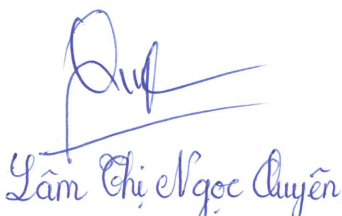 Lâm Thị Ngọc Quyên